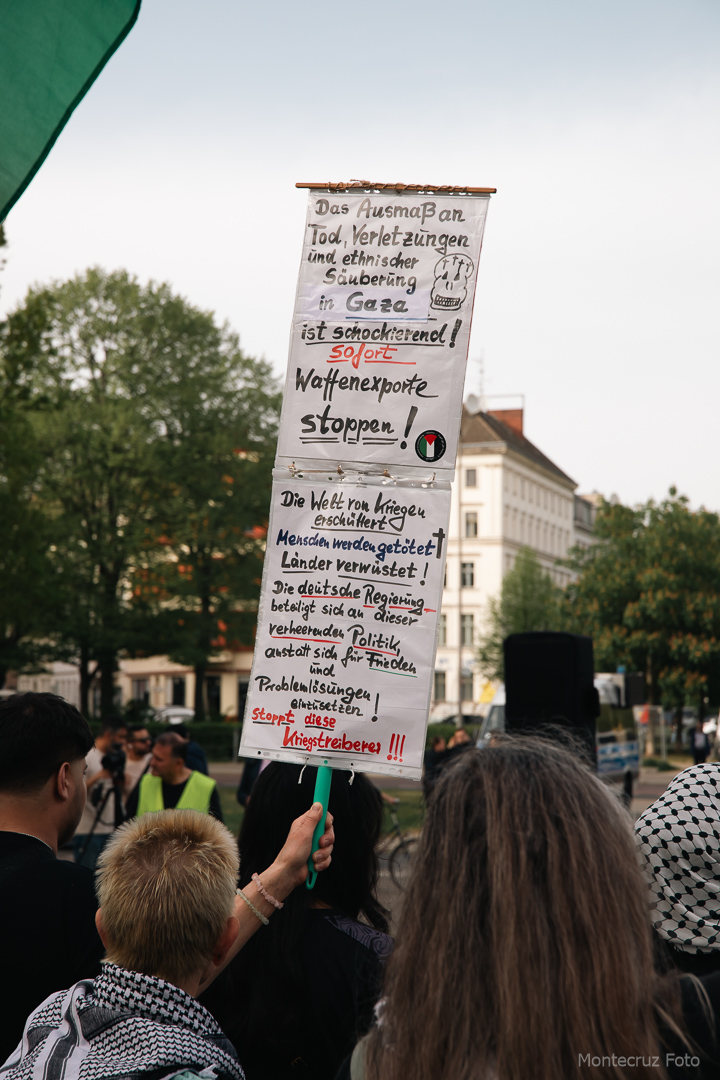 Das Ausmaß an
Tod, Verletzungen
und ethnischer
Säuberung
in Gaza
ist schockierend!
sofort
Waffenexporte
stoppen!
Die Welt von Kriegen
erschüttert
Menschen werden getötet
Länder verwüstet!
Die deutsche Regierung
beteiligt sich an dieser
verheerenden Politik,
anstatt sich für Frieden
und
Problemlösungen
einzusetzen!
Stoppt diese
Kriegstreiberei!!!
Montecruz Foto